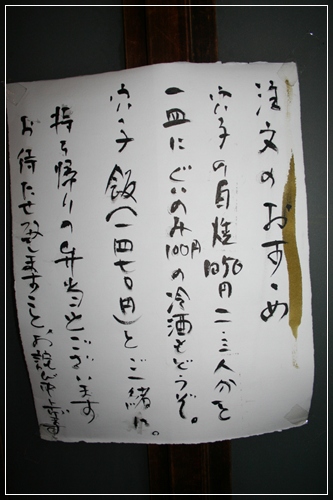 注文のおすゝめ
穴子の白焼1050円二・三人分を
一皿にぐいのみ100円の冷酒をどうぞ。
穴子飯(一四七〇円)とご一緒に。
持ち帰りの弁当もございます
お待たせ致しますことお詫び申し上げます